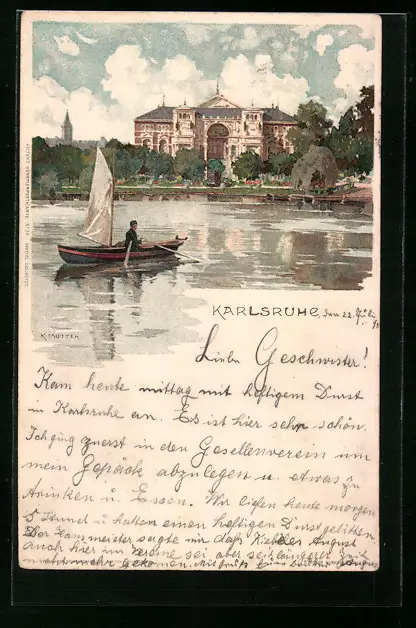 K. MUTTER
KARLSRUHE, den 22. Juli
Liebe Geschwister!
Kam heute mittag mit heftigem Durst
in Karlsruhe an. Es ist hier sehr schön.
Ich ging zuerst in den Gesellenverein um
mein Gepäck abzulegen u. etwas zu
trinken u. Essen. Wir liefen heute morgen
5 Stund u hatten einen heftigen Durst gelitten.
Der meister sagte mir daß August
auch hier zur sei aber seit längerer Zeit
nicht mehr gekommen. Mit Gruß Euer